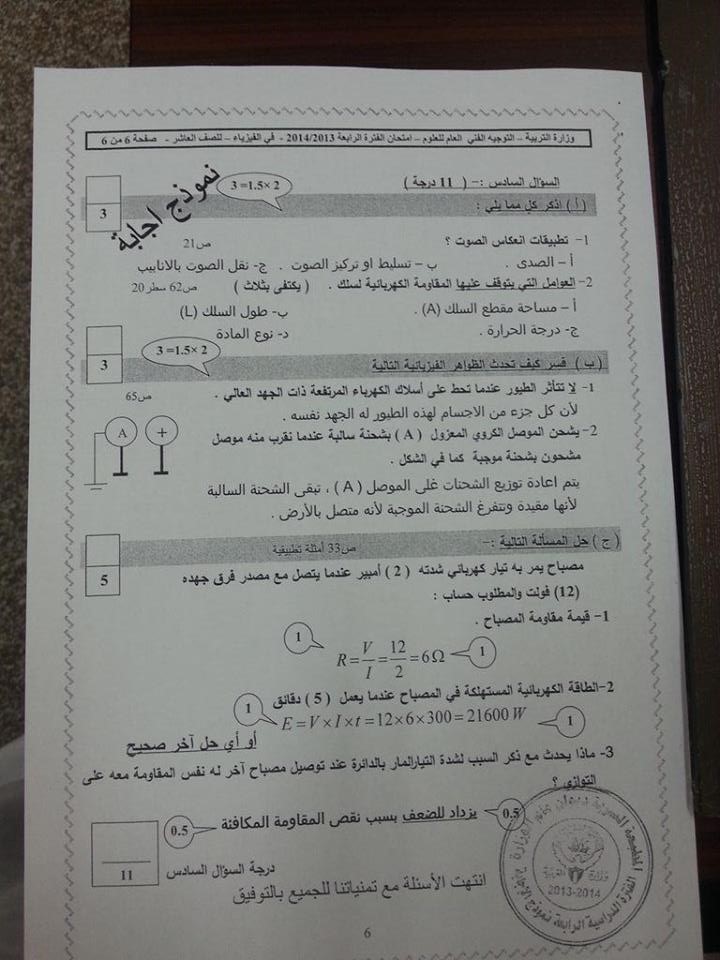 وزارة التربية – التوجيه الفني العام للعلوم – امتحان الفترة الرابعة 2014/2013 - في الفيزياء – للصف العاشر - صفحة 6 من 6
السؤال السادس :– ( 11 درجة )
3 =1.5× 2
نموذج اجابة
3
( أ ) اذكر كل مما يلي :
1- تطبيقات انعكاس الصوت ؟ ص21
أ – الصدى . ب – تسليط او تركيز الصوت . ج- نقل الصوت بالانابيب
2- العوامل التي يتوقف عليها المقاومة الكهربائية لسلك . ( يكتفى بثلاث ) ص62 سطر 20
أ – مساحة مقطع السلك (A) . ب- طول السلك (L)
ج- درجة الحرارة . د- نوع المادة
3 =1.5× 2
3
( ب ) فسر كيف تحدث الظواهر الفيزيائية التالية
1- لا تتأثر الطيور عندما تحط على أسلاك الكهرباء المرتفعة ذات الجهد العالي . ص65
لأن كل جزء من الاجسام لهذه الطيور له الجهد نفسه .
2- يشحن الموصل الكروي المعزول ( A ) بشحنة سالبة عندما نقرب منه موصل
مشحون بشحنة موجبة كما في الشكل .
A +
يتم اعادة توزيع الشحنات غلى الموصل ( A ) ، تبقى الشحنة السالبة
لأنها مقيدة وتتفرغ الشحنة الموجبة لأنه متصل بالأرض .
( ج ) حل المسألة التالية :– ص33 أمثلة تطبيقية
5
مصباح يمر به تيار كهربائي شدته ( 2 ) أمبير عندما يتصل مع مصدر فرق جهده
(12) فولت والمطلوب حساب :
1- قيمة مقاومة المصباح .
1 R = V/I = 12/2 = 6 Ω 1
2-الطاقة الكهربائية المستهلكة في المصباح عندما يعمل ( 5 ) دقائق
1 E = V × I × t = 12 × 6 × 300 = 21600 W 1
أو أي حل آخر صحيح
3- ماذا يحدث مع ذكر السبب لشدة التيارالمار بالدائرة عند توصيل مصباح آخر له نفس المقاومة معه على
التوازي ؟
0.5 يزداد للضعف بسبب نقص المقاومة المكافئة 0.5
11
درجة السؤال السادس
انتهت الأسئلة مع تمنياتنا للجميع بالتوفيق
2013-2014
الفترة الدراسية الرابعة نموذج الاجابة
6